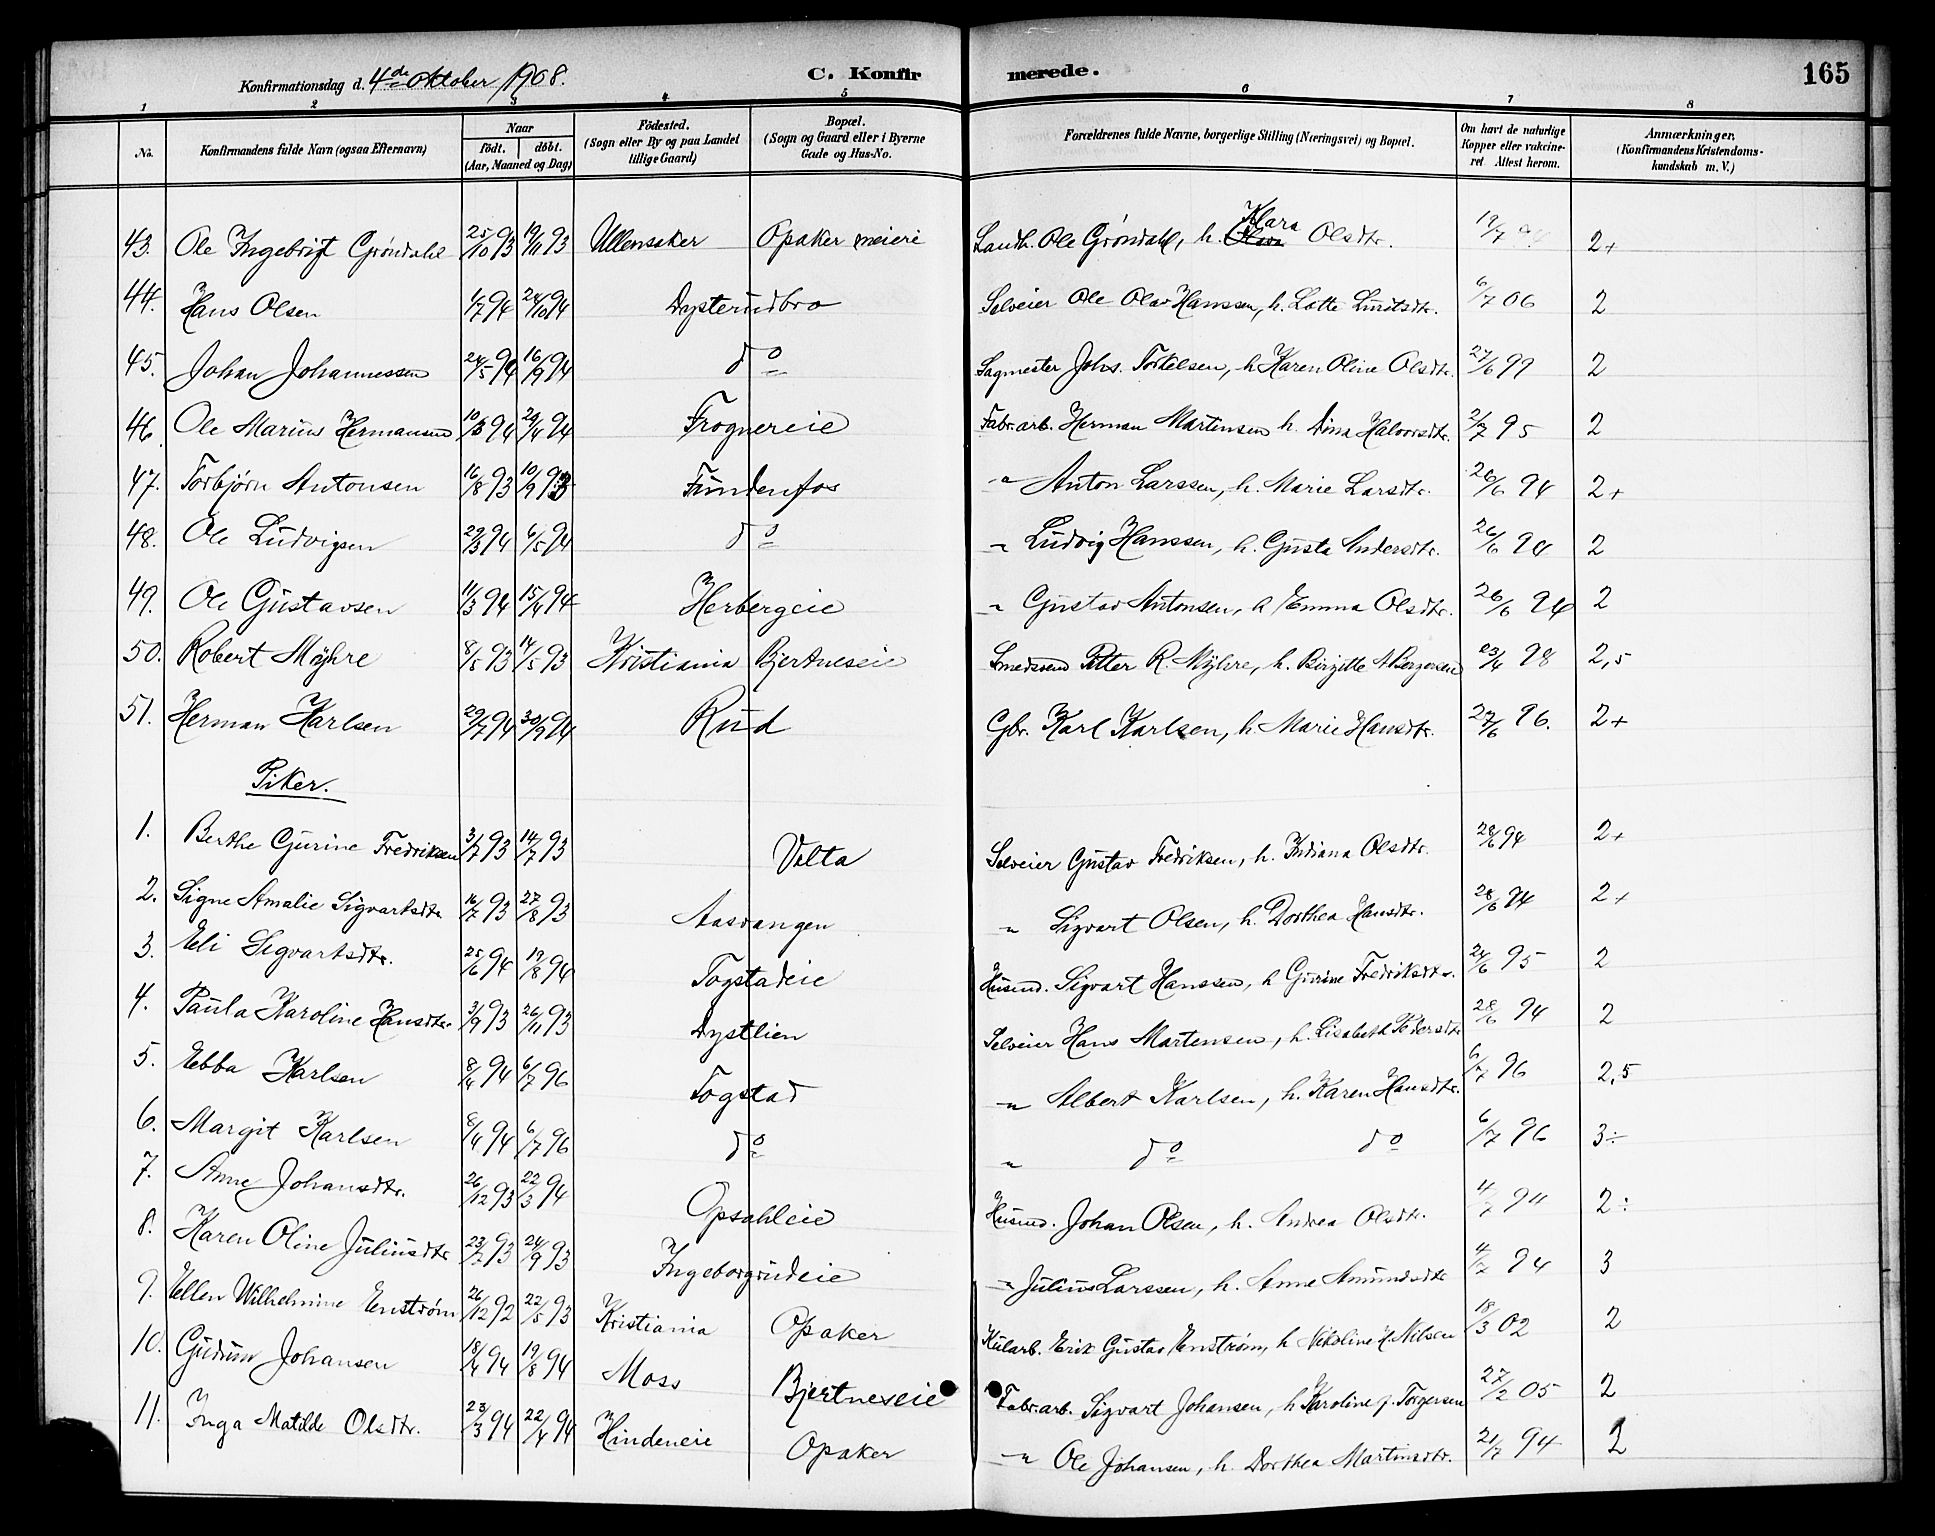 Konfirmationsdag d. 4de Oktober 1908.
C. Konfirmerede.
165
1 2 3 4 5 6 7 8
No. Konfirmandens fulde Navn (ogsaa Efternavn) Naar født. døbt. (Aar, Maaned og Dag) Födested. (Sogn eller By og paa Landet tillige Gaard) Bopæl. (Sogn og Gaard eller i Byerne Gade og Hus-No. Forældrenes fulde Navne, borgerlige Stilling (Næringsvei) og Bopæl. Om havt de naturlige Kopper eller vakcineret Attest herom. Anmærkninger. (Konfirmandens Kristendomskundskab m. V.)
43. Ole Ingebrigt Grøndahl 25/10 93 19/11 93 Ullensaker Opaker meieri Landh. Ole Grøndahl, h. Klara Olsdtr. 2+
44. Hans Olsen 1/7 94 24/10 94 Dysterudbro Selveier Ole Olav Hanssen, h. Lotte Lundsdtr. 6/7 06 2
45. Johan Johannessen 24/5 94 16/9 94 do Sagmester Johs. Torkelsen, h. Karen Oline Olsdtr. 27/6 99 2
46. Ole Marius Hermansen 10/3 94 29/4 94 Frognereie Fabr.arb. Herman Martinsen h. Dina Halvorsdtr. 2/7 95 2
47. Torbjørn Antonsen 16/8 93 10/9 93 Fundenfos " Anton Larssen, h. Marie Larsdtr. 26/6 94 2+
48. Ole Ludvigsen 29/3 94 6/5 94 do " Ludvig Hanssen, h. Gusta Andersdtr. 26/6 94 2
49. Ole Gustavsen 11/3 94 15/4 94 Herbergeie " Gustav Antonsen, h. Emma Olsdtr. 26/6 94 2
50. Robert Myhre 8/5 93 14/5 93 Kristiania Bjertneseie Smedsvend Petter R. Myhre, h. Birgitte A Bergersen 23/4 98 2,5
51. Herman Karlsen 29/7 94 30/9 94 Rud Gbr. Karl Karlsen, h. Marie Hansdtr. 27/6 96. 2+
Piker.
1. Berthe Gurine Fredriksen 3/7 93 14/7 93 Velta Selveier Gustav Fredriksen, h. Indiana Olsdtr. 28/6 94 2+
2. Signe Amalie Sigvartsdtr. 16/7 93 27/8 93 Aasvangen " Sigvart Olsen, h. Dorthea Hansdtr. 28/6 94 2+
3. Eli Sigvartsdtr. 25/6 94 19/8 94 Togstadeie Husmd. Sigvart Hanssen, h Gurine Fredriksdtr. 24/6 95 2
4. Paula Karoline Hansdtr. 3/9 93 26/11 93 Dystlien Selveier Hans Martensen, h. Lisabeth Pedersdtr 28/6 94 2
5. Ebba Karlsen 8/4 94 6/7 96 Togstad " Albert Karlsen, h. Karen Hansdtr. 6/7 96 2,5
6. Margit Karlsen 8/4 94 6/7 96 do " do do 6/7 96 3÷
7. Anne Johansdtr. 26/12 93 22/3 94 Opsahleie Husmd. Johan Olsen, h. Andrea Olsdtr. 4/7 94 2÷
8. Karen Oline Juliusdtr 23/7 93 24/9 93 Ingeborgrudeie " Julius Larssen, h. Anne Amundsdtr 4/7 94 3
9. Ellen Wilhelmine Enstrøm 26/12 92 22/5 93 Kristiania Opaker Kularb. Erik Gustav Enstrøm, h Nikoline f. Nilsen 18/3 02 2
10. Gudrun Johansen 18/4 94 19/8 94 Moss Bjertneseie Fabr.arb. Sigvart Johansen, h Karoline f. Torgersen 27/2 05 2
11. Inga Matilde Olsdtr. 23/3 94 22/4 94 Hindeneie Opaker " Ole Johansen, h. Dorthea Martinsdtr. 21/7 94 2